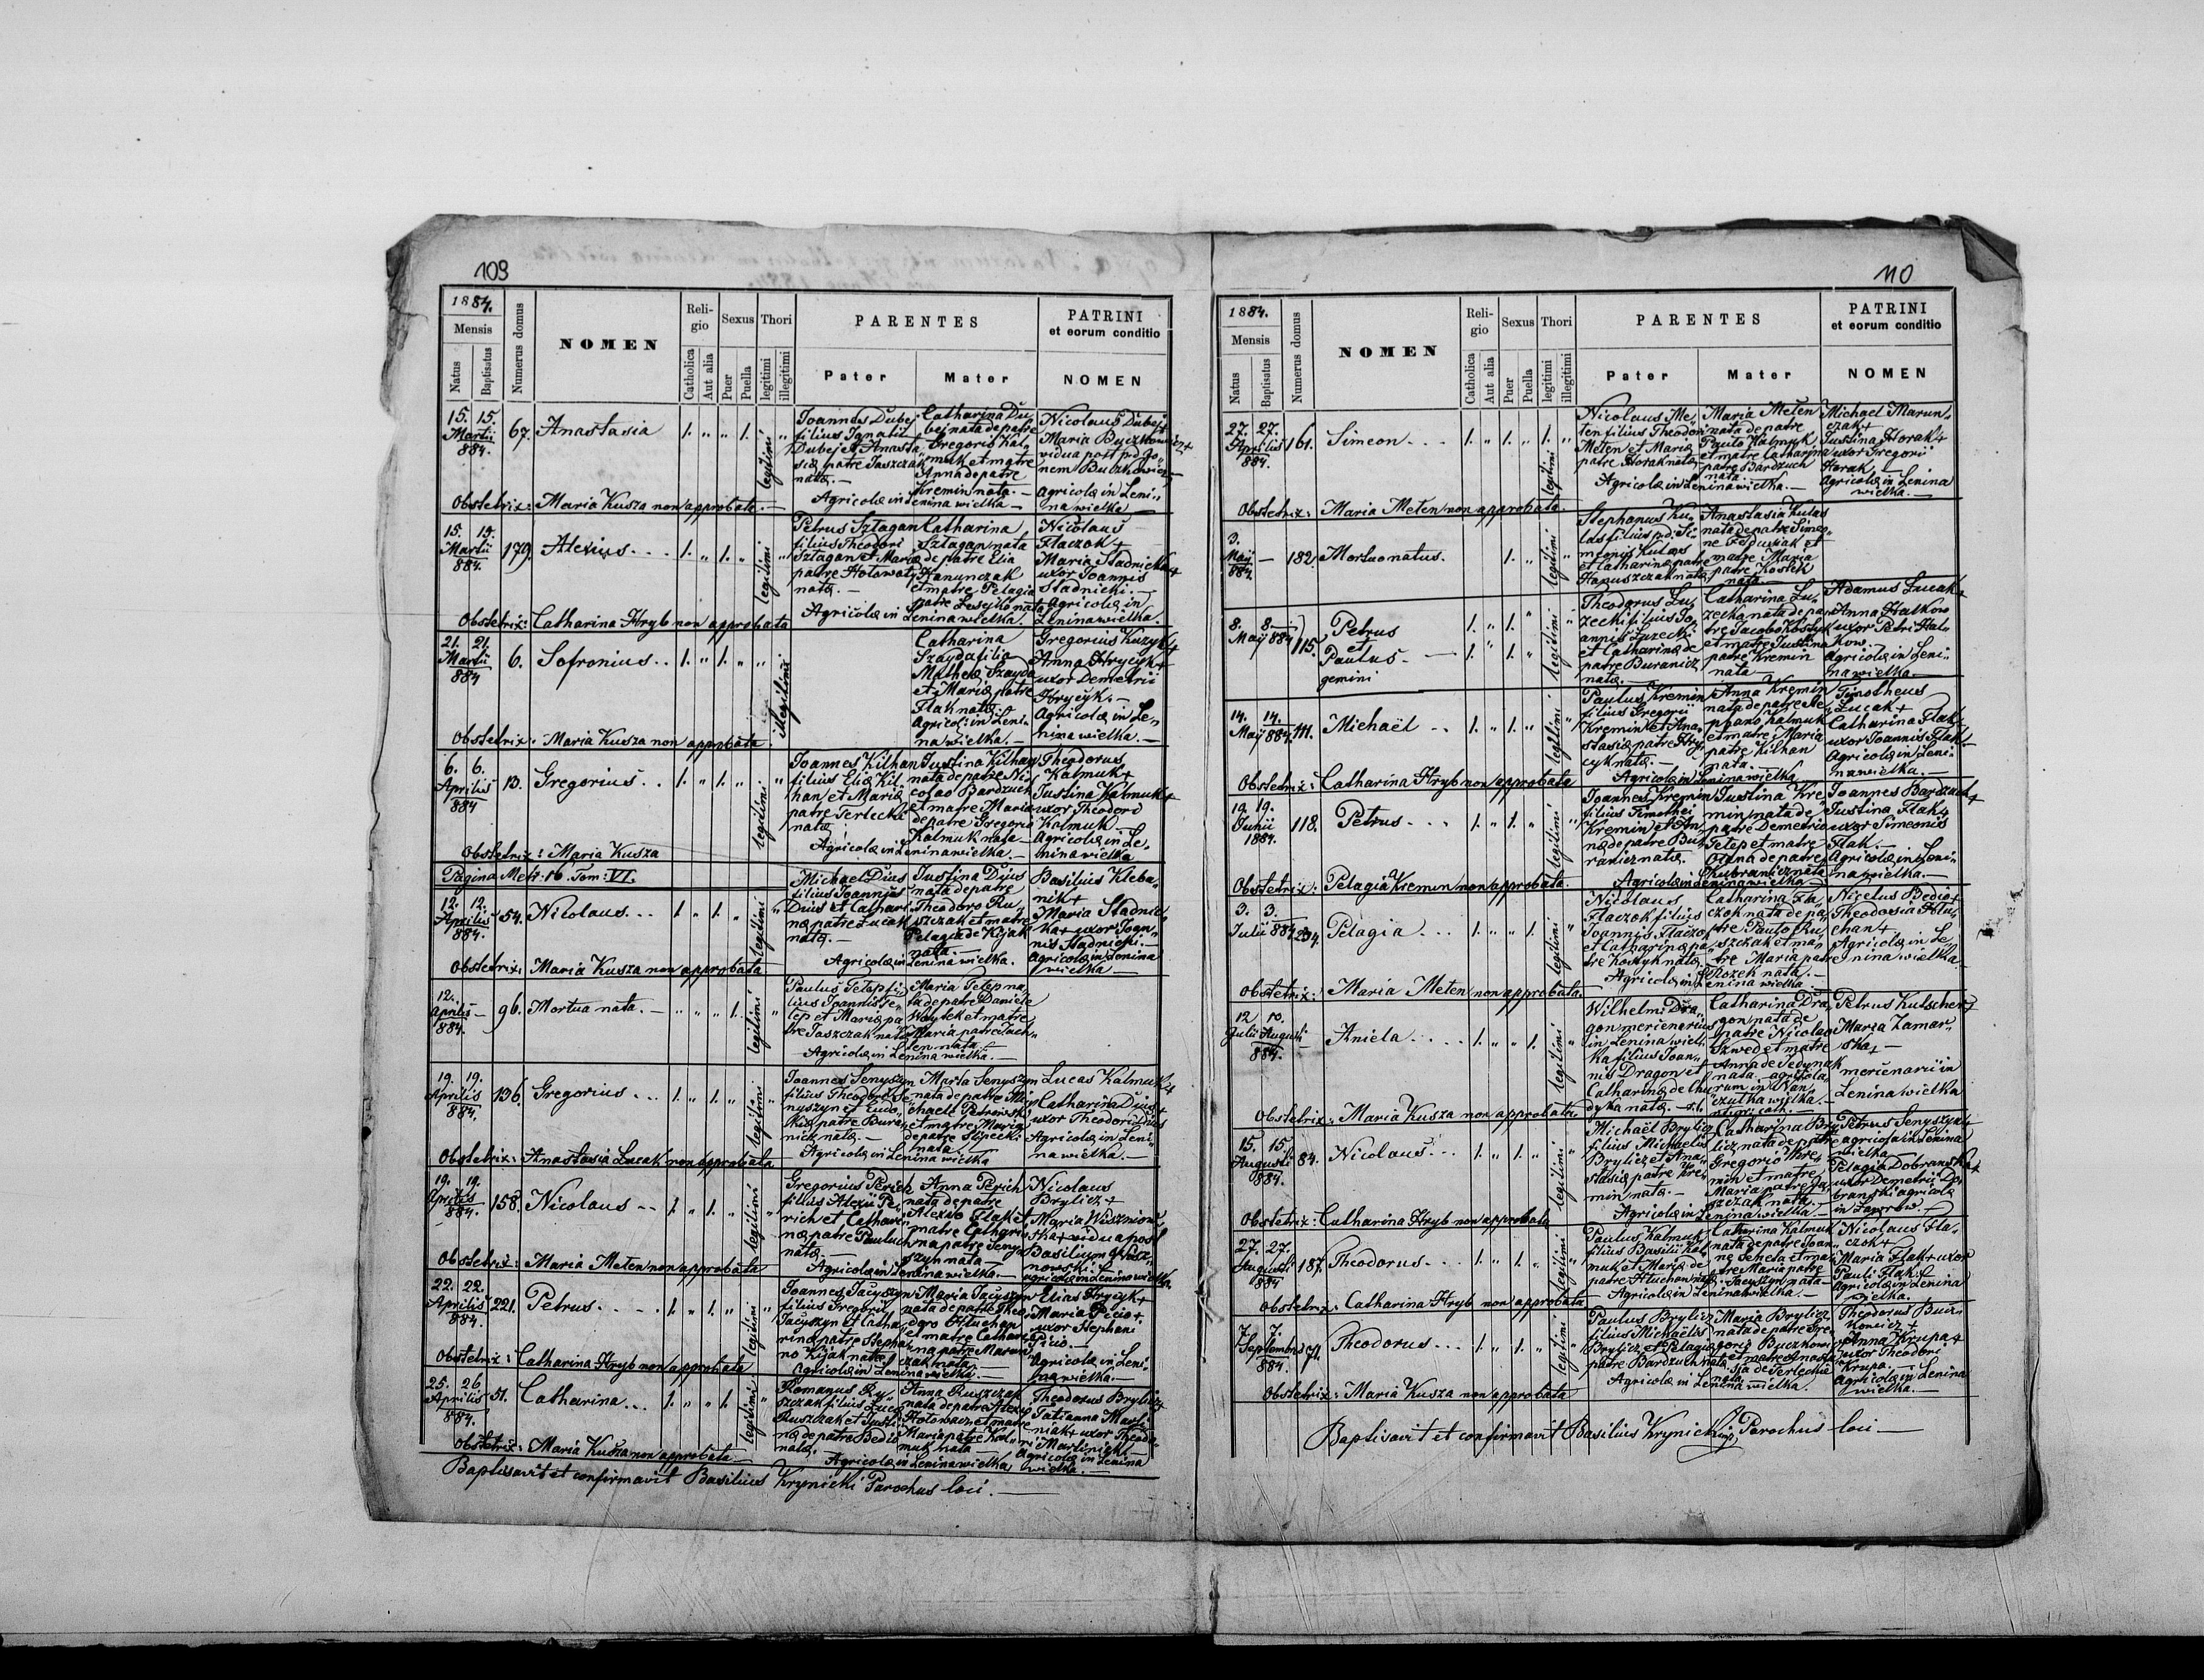 109
1884.
Mensis
Natus
Baptisatus
Numerus domus
NOMEN
Reli-
gio
Catholica
Aut alia
Sexus
Puer
Puella
Thori
legitimi
illegitimi
PARENTES
Pater
Mater
PATRINI
et eorum conditio
NOMEN
15. 15.
Martii
884.
67.
Anastasia
1. „ „ 1.
legitimi
Joannes Dubej
filius Ignatii
Dubej et Anasta„
siæ patre Jaszczak
natæ.—
Catharina Du„
bej nata de patre
Gregorio Kal„
muk et matre
Anna de patre
Kremin nata.—
Agricolæ in Lenina wielka —
Nicolaus Dubej +
Maria Buczkowicz +
vidua post pd. Jo„
nem Buczkowicz —
Agricolæ in Leni„
na wielka
Obstetrix: Maria Kusza non approbata.—
15. 19.
Martii
884.
179.
Alexius...
1. „ 1. „
legitimi
Petrus Sztagan
filius Theodori
Sztagan et Mariæ
patre Hotowaty
natæ.—
Catharina
Sztagan nata
de patre Elia
Hanunczak
et matre Pelagia
patre Lesejko nata
Agricolæ in Lenina wielka.
Nicolaus
Flaczok +
Maria Stadnicka +
uxor Joannis
Stadnicki.—
Agricolæ in
Lenina wielka.
Obstetrix: Catharina Hryb non approbata
21. 21.
Martii
884
6.
Sofronius..
1. „ 1. „ „
illegitimi
Catharina
Szayda filia
Mathei Szayda
et Mariæ patre
Flak natæ.
Agricol: in Leni„
na wielka.—
Gregorius Kuzyk +
Anna Hrycyk +
uxor Demetrii
Hrycyk.—
Agricolæ in Le„
nina wielka.—
Obstetrix: Maria Kusza non approbata
6. 6.
Aprilis
884
13.
Gregorius..
1. „ 1. „
legitimi
Joannes Kilhan
filius Eliæ Kil„
han et Mariæ
patre Terlecka
natæ
Justina Kilhan
nata de patre Nic„
colao Bardzuch
et matre Maria
de patre Gregorio
Kalmuk nata —
Agricolæ in Lenina wielka.—
Theodorus
Kalmuk +
Justina Kalmuk +
uxor Theodori
Kalmuk —
Agricolæ in Le„
nina wielka
Obstetrix: Maria Kusza
Pagina Metr: 16. Tom: VI.
12. 12.
Aprilis
884.
54.
Nicolaus...
1. „ 1. „
legitimi
Michael Dius
filius Joannis
Dius et Cathari„
næ patre Lucak
natæ.—
Justina Dijus
nata de patre
Theodoro Ru„
szczak et matre
Pelagia de Kijak
nata.—
Agricolæ in Lenina wielka.
Basilius Kleba„
nik +
Maria Stadnic„
ka + uxor Joan„
nis Stadnicki.—
Agricolæ in Lenina
wielka —
Obstetrix: Maria Kusza non approbata
12.
Aprilis
884.
96.
Mortua nata. —
„ „ „ 1.
legitimi
Paulus Telep fi„
lius Joannis Te„
lep et Mariæ pa„
tre Jaszczak natæ
Maria Telep na„
ta de patre Daniele
Woytek et matre
Maria patre
nata
Agricolæ in Lenina wielka.—
19. 19.
Aprilis
884.
136.
Gregorius...
1. „ 1. „
legitimi
Joannes Senyszyn
filius Theodori Se„
nyszyn et Eudo„
kiæ patre Bura„
nicz natæ.—
Maria Senyszyn
nata de patre Mi„
chaele Petrowski
et matre Maria
de patre Slipecki
nata
Agricolæ in Lenina wielka
Lucas Kalmuk +
Catharina Dius +
uxor Theodori Dius
Agricolæ in Leni„
na wielka.—
Obstetrix: Anastasia Lucak non approbata
19. 19.
Aprilis
884.
158.
Nicolaus..
1. „ 1. „
legitimi
Gregorius Perich
filius Alexii Pe„
rich et Cathari„
næ patre Pauluch
natæ.—
Anna Perich
nata de patre
Alexio Flak et
matre Cathari„
na patre Seny„
szyn nata —
Agricolæ in Lenina wielka.—
Nicolaus
Brylicz +
Maria Wiszniow„
ska + vidua post
Basilium Wisz„
nowski
agricolæ in Lenina wielka
Obstetrix: Maria Meten non approbata
22. 22.
Aprilis
884.
221.
Petrus....
1. „ 1. „
legitimi
Joannes Jacyszyn
filius Gregorii
Jacyszyn et Catha„
rinæ patre Stepha„
no Kijak natæ
Maria Jacyszyn
nata de patre Theo„
doro Hluchan
et matre Cathari„
na patre Marun„
czak nata.—
Agricolæ in Lenina wielka.—
Elias Hrycyk +
Maria Picio +
uxor Stephani
Picio.—
Agricolæ in Leni„
na wielka —
Obstetrix: Catharina Hryb non approbata
25. 26.
Aprilis
884.
51.
Catharina...
1. „ „ 1.
legitimi
Romanus Ru„
szczak filius Lucæ
Ruszczak et Justi„
næ de patre Bedio
natæ.
Anna Ruszczak
nata de patre Alexio
Hotowacz et matre
Maria patre Kal„
muk nata —
Agricolæ in Lenina wielka
Theodorus Brylicz +
Tatianna Marti„
niak + uxor Theodo„
ri Martiniak —
Agricolæ in Lenina
wielka.—
Obstetrix: Maria Kusza non approbata —
Baptisavit et confirmavit Basilius Krynicki Parochus loci.—
110
1884.
Mensis
Natus
Baptisatus
Numerus domus
NOMEN
Reli-
gio
Catholica
Aut alia
Sexus
Puer
Puella
Thori
legitimi
illegitimi
PARENTES
Pater
Mater
PATRINI
et eorum conditio
NOMEN
27. 27.
Aprilis
884.
161.
Simeon...
1. „ 1. „ 1. „
legitimi
Nicolaus Me„
ten filius Theodori
Meten et Mariæ
patre Horak natæ
Maria Meten
nata de patre
Paulo Kalmuk
et matre Catharina
patre Bardzuch
nata
Agricolæ in Lenina wielka.—
Michael Marun„
czak +
Justina Horak +
uxor Gregorii
Horak —
Agricolæ in Lenina
wielka.—
Obstetrix: Maria Meten non approbata
3.
Maij
884.
—
182.
Mortuo natus.
1. „
legitimi
Stephanus Ku„
las filius pd. Si„
meonis Kulas
et Catharinæ patre
Hanuszczak natæ
Anastasia Kulas
nata de patre Simeo„
ne Fedusiak et
matre Maria
patre Kostek
nata
8. 8.
Maij 884
115.
Petrus
et
Paulus.
gemini
1. „ 1. „
1. „ 1. „
legitimi
Theodorus Lu„
zecki filius Jo„
annis Luzecki
et Catharinæ de
patre Buranicz
natæ.
Catharina Lu„
zecka nata de pa„
tre Jacobo Kostyk
et matre Justina
patre Kremin
nata —
Adamus Lucak +
Anna Halkow
uxor Petri Hal„
kow.
Agricolæ in Leni„
na wielka.—
14. 14.
Maij 884.
111.
Michaël..
1. „ 1. „
legitimi
Paulus Kremin
filius Gregorii
Kremin et Ana„
stasiæ patre Hry„
cyk natæ.—
Anna Kremin
nata de patre Ste„
phano Kalmuk
et matre Maria
patre Kilhan
nata.—
Agricolæ in Lenina wielka
Timotheus
Lucak +
Catharina Flak +
uxor Joannis Flak
Agricolæ in Leni„
na wielka.—
Obstetrix: Catharina Hryb non approbata
19. 19.
Junii
1884.
118.
Petrus...
1. „ 1. „
legitimi
Joannes Kremin
filius Timothei
Kremin et An„
næ de patre Bu„
ranicz natæ.
Justina Kre„
min nata de
patre Demetrio
Telep et matre
Anna de patre
Chubranicz nata
Agricolæ in Lenina wielka
Joannes Bardzuch +
Justina Flak +
uxor Simeonis
Flak.—
Agricolæ in Leni„
na wielka.—
Obstetrix: Pelagia Kremin non approbata.
3. 3.
Julii 884
234.
Pelagia...
1. „ „ 1.
legitimi
Nicolaus
Flaczok filius
Joannis Flaczok
et Catharinæ pa„
tre Kostyk natæ.
Catharina Fla„
czok nata de pa„
tre Paulo Ru„
szczak et ma„
tre Maria patre
Ploczek nata.—
Agricolæ in Lenina wielka
Nicetus Bedio +
Theodosia Hlu„
chan +
Agricolæ in Le„
nina wielka
Obstetrix: Maria Meten non approbata.
12 10.
Julii Augusti
884.
Aniela....
1. „ „ 1.
legitimi
Wilhelm Dra„
gon mercenarius
in Lenina wiel„
ka filius Joan„
nis Dragon et
Catharinæ de Chu„
dyka natæ.
Catharina Dra„
gon nata de
patre Nicolao
Szwed et matre
Anna de Jedynak
nata. agricola„
rum in Nan„
czułka wielka.—
Petrus Kutscher +
Maria Zamar„
ska +
mercenarii in
Lenina wielka
Obstetrix: Maria Kusza non approbata
15. 15.
Augusti
884.
84.
Nicolaus...
1. „ 1. „
legitimi
Michaël Brylicz
filius Michaelis
Brylicz et Ana„
stasiæ patre Kre„
min natæ.—
Catharina Bry„
licz nata de patre
Gregorio Kre„
min et matre
Maria patre
nata.
Agricolæ in Lenina wielka —
Petrus Senyszyn +
agricola in Lenina
wielka
Pelagia Dobranska +
uxor Demetrii Do„
branski agricolæ
in Zawrow.—
Obstetrix: Catharina Hryb non approbata
27. 27.
Augusti
884
187.
Theodorus...
1. „ 1. „
legitimi
Paulus Kalmuk
filius Basilii Kal„
muk et Mariæ de
patre Hluchan natæ
Catharina Kalmuk
nata de patre Joan„
ne Seneta et ma„
tre Maria patre
Jacyszyn nata —
Agricolæ in Lenina wielka.—
Nicolaus Fla„
czok +
Maria Flak + uxor
Pauli Flak.—
Agricolæ in Lenina
wielka.
Obstetrix: Catharina Hryb non approbata
7. 7.
Septembris
884.
71.
Theodorus...
1. „ 1. „
legitimi
Paulus Brylicz
filius Michaëlis
Brylicz et Pelagiæ
patre Bardzuch natæ
Maria Brylicz
nata de patre Gre„
gorio Buczkowicz
et matre Anasta„
sia de Terlecka
nata.
Agricolæ in Lenina wielka.
Theodorus Bucz„
kowicz +
Anna Krupa +
uxor Theodori
Krupa.—
Agricolæ in Lenina
wielka.—
Obstetrix: Maria Kusza non approbata
Baptisavit et confirmavit Basilius Krynicki Parochus loci —